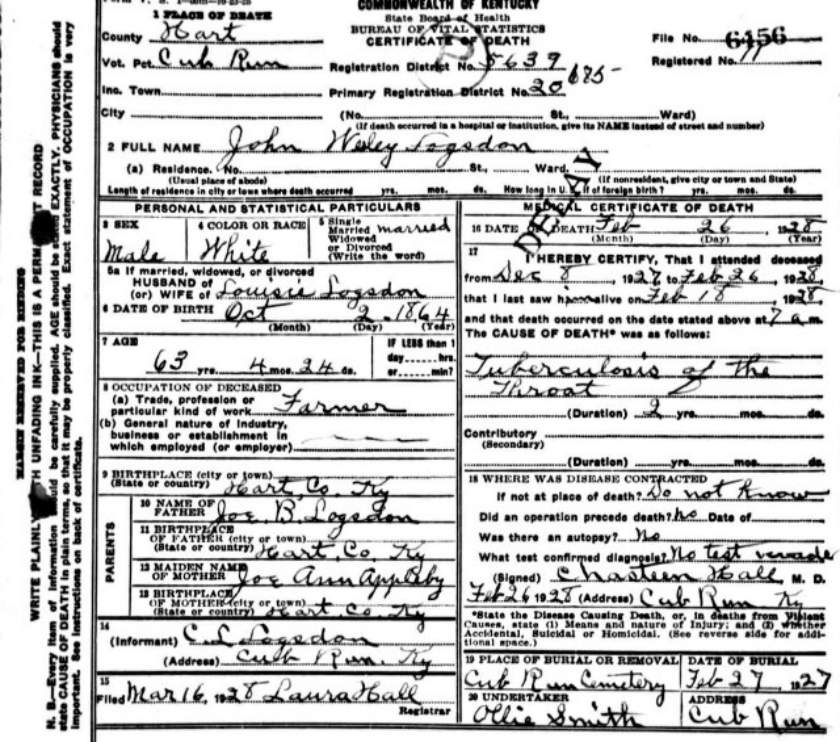 COMMONWEALTH OF KENTUCKY
State Board of Health
BUREAU OF VITAL STATISTICS
CERTIFICATE OF DEATH
1 PLACE OF DEATH
County Hart
Vot. Pct. Cub Run
Inc. Town
City
Registration District No. 5639
Primary Registration District No. 20 685-
File No. 6456
Registered No. 11
(No. St., Ward)
(If death occurred in a hospital or institution, give its NAME instead of street and number)
2 FULL NAME John Wesley Logsdon
(a) Residence. No. St., Ward.
(Usual place of abode) (If nonresident, give city or town and State)
Length of residence in city or town where death occurred yrs. mos. ds. How long in U. S., if of foreign birth? yrs. mos. ds.
DELAY
PERSONAL AND STATISTICAL PARTICULARS
3 SEX
Male
4 COLOR OR RACE
White
5 Single
Married married
Widowed
or Divorced
(Write the word)
5a If married, widowed, or divorced
HUSBAND of
(or) WIFE of Louisie Logsdon
6 DATE OF BIRTH Oct 2, 1864
(Month) (Day) (Year)
7 AGE
63 yrs. 4 mos. 24 ds.
IF LESS than 1
day hrs.
or min?
8 OCCUPATION OF DECEASED
(a) Trade, profession or
particular kind of work Farmer
(b) General nature of industry,
business or establishment in
which employed (or employer)
9 BIRTHPLACE (city or town)
(State or country) Hart, Co. Ky
PARENTS
10 NAME OF
FATHER Joe. B. Logsdon
11 BIRTHPLACE
OF FATHER (city or town)
(State or country) Hart, Co. Ky
12 MAIDEN NAME
OF MOTHER Joe Ann Appleby
13 BIRTHPLACE
OF MOTHER (city or town)
(State or country) Hart Co. Ky
14
(Informant) C. L. Logsdon
(Address) Cub Run. Ky
15
Filed Mar 16, 1928 Laura Hall
Registrar
MEDICAL CERTIFICATE OF DEATH
16 DATE OF DEATH Feb 26, 1928
(Month) (Day) (Year)
17
I HEREBY CERTIFY, That I attended deceased
from Dec 8, 1927 to Feb 26, 1928
that I last saw him alive on Feb 18, 1928,
and that death occurred on the date stated above at 7 a m.
The CAUSE OF DEATH* was as follows:
Tuberculosis of the
Throat
(Duration) 2 yrs. mos. ds.
Contributory
(Secondary)
(Duration) yrs. mos. ds.
18 WHERE WAS DISEASE CONTRACTED
If not at place of death? Do not know
Did an operation precede death? No Date of
Was there an autopsy? No
What test confirmed diagnosis? No test made
(Signed) Chasteen Hall, M. D.
Feb 26 1928 (Address) Cub Run Ky
*State the Disease Causing Death, or, in deaths from Violent
Causes, state (1) Means and nature of Injury; and (2) whether
Accidental, Suicidal or Homicidal. (See reverse side for addi-
tional space.)
19 PLACE OF BURIAL OR REMOVAL
Cub Run Cemetery
DATE OF BURIAL
Feb 27, 1927
20 UNDERTAKER
Ollie Smith
ADDRESS
Cub Run
MARGIN RESERVED FOR BINDING
WRITE PLAINLY WITH UNFADING INK—THIS IS A PERMANENT RECORD
N. B.—Every item of information should be carefully supplied. AGE should be stated EXACTLY. PHYSICIANS should
state CAUSE OF DEATH in plain terms, so that it may be properly classified. Exact statement of OCCUPATION is very
important. See instructions on back of certificate.